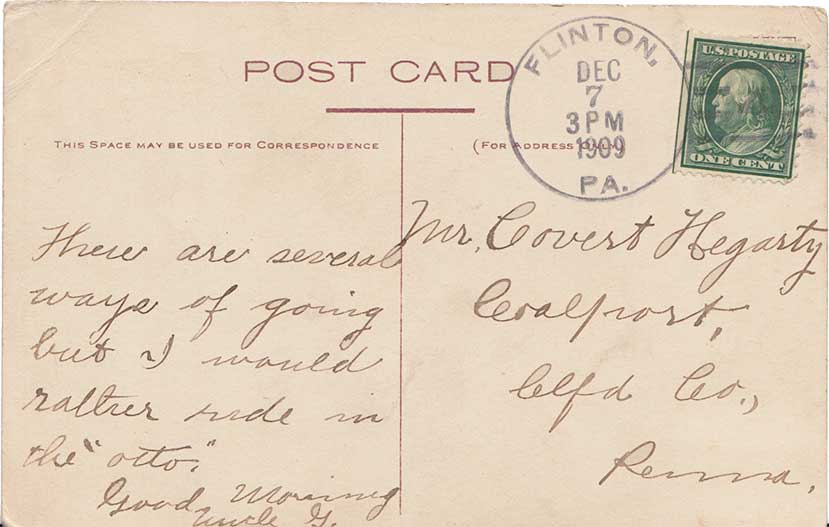 POST CARD
THIS SPACE MAY BE USED FOR CORRESPONDENCE
(FOR ADDRESS ONLY)
FLINTON,
DEC
7
3 PM
1909
PA.
U.S. POSTAGE
ONE CENT
There are several
ways of going
but I would
rather ride in
the "otto."
Good Morning
Uncle G.
Mr. Covert Hegarty
Coalport,
Clfd Co.,
Penna.